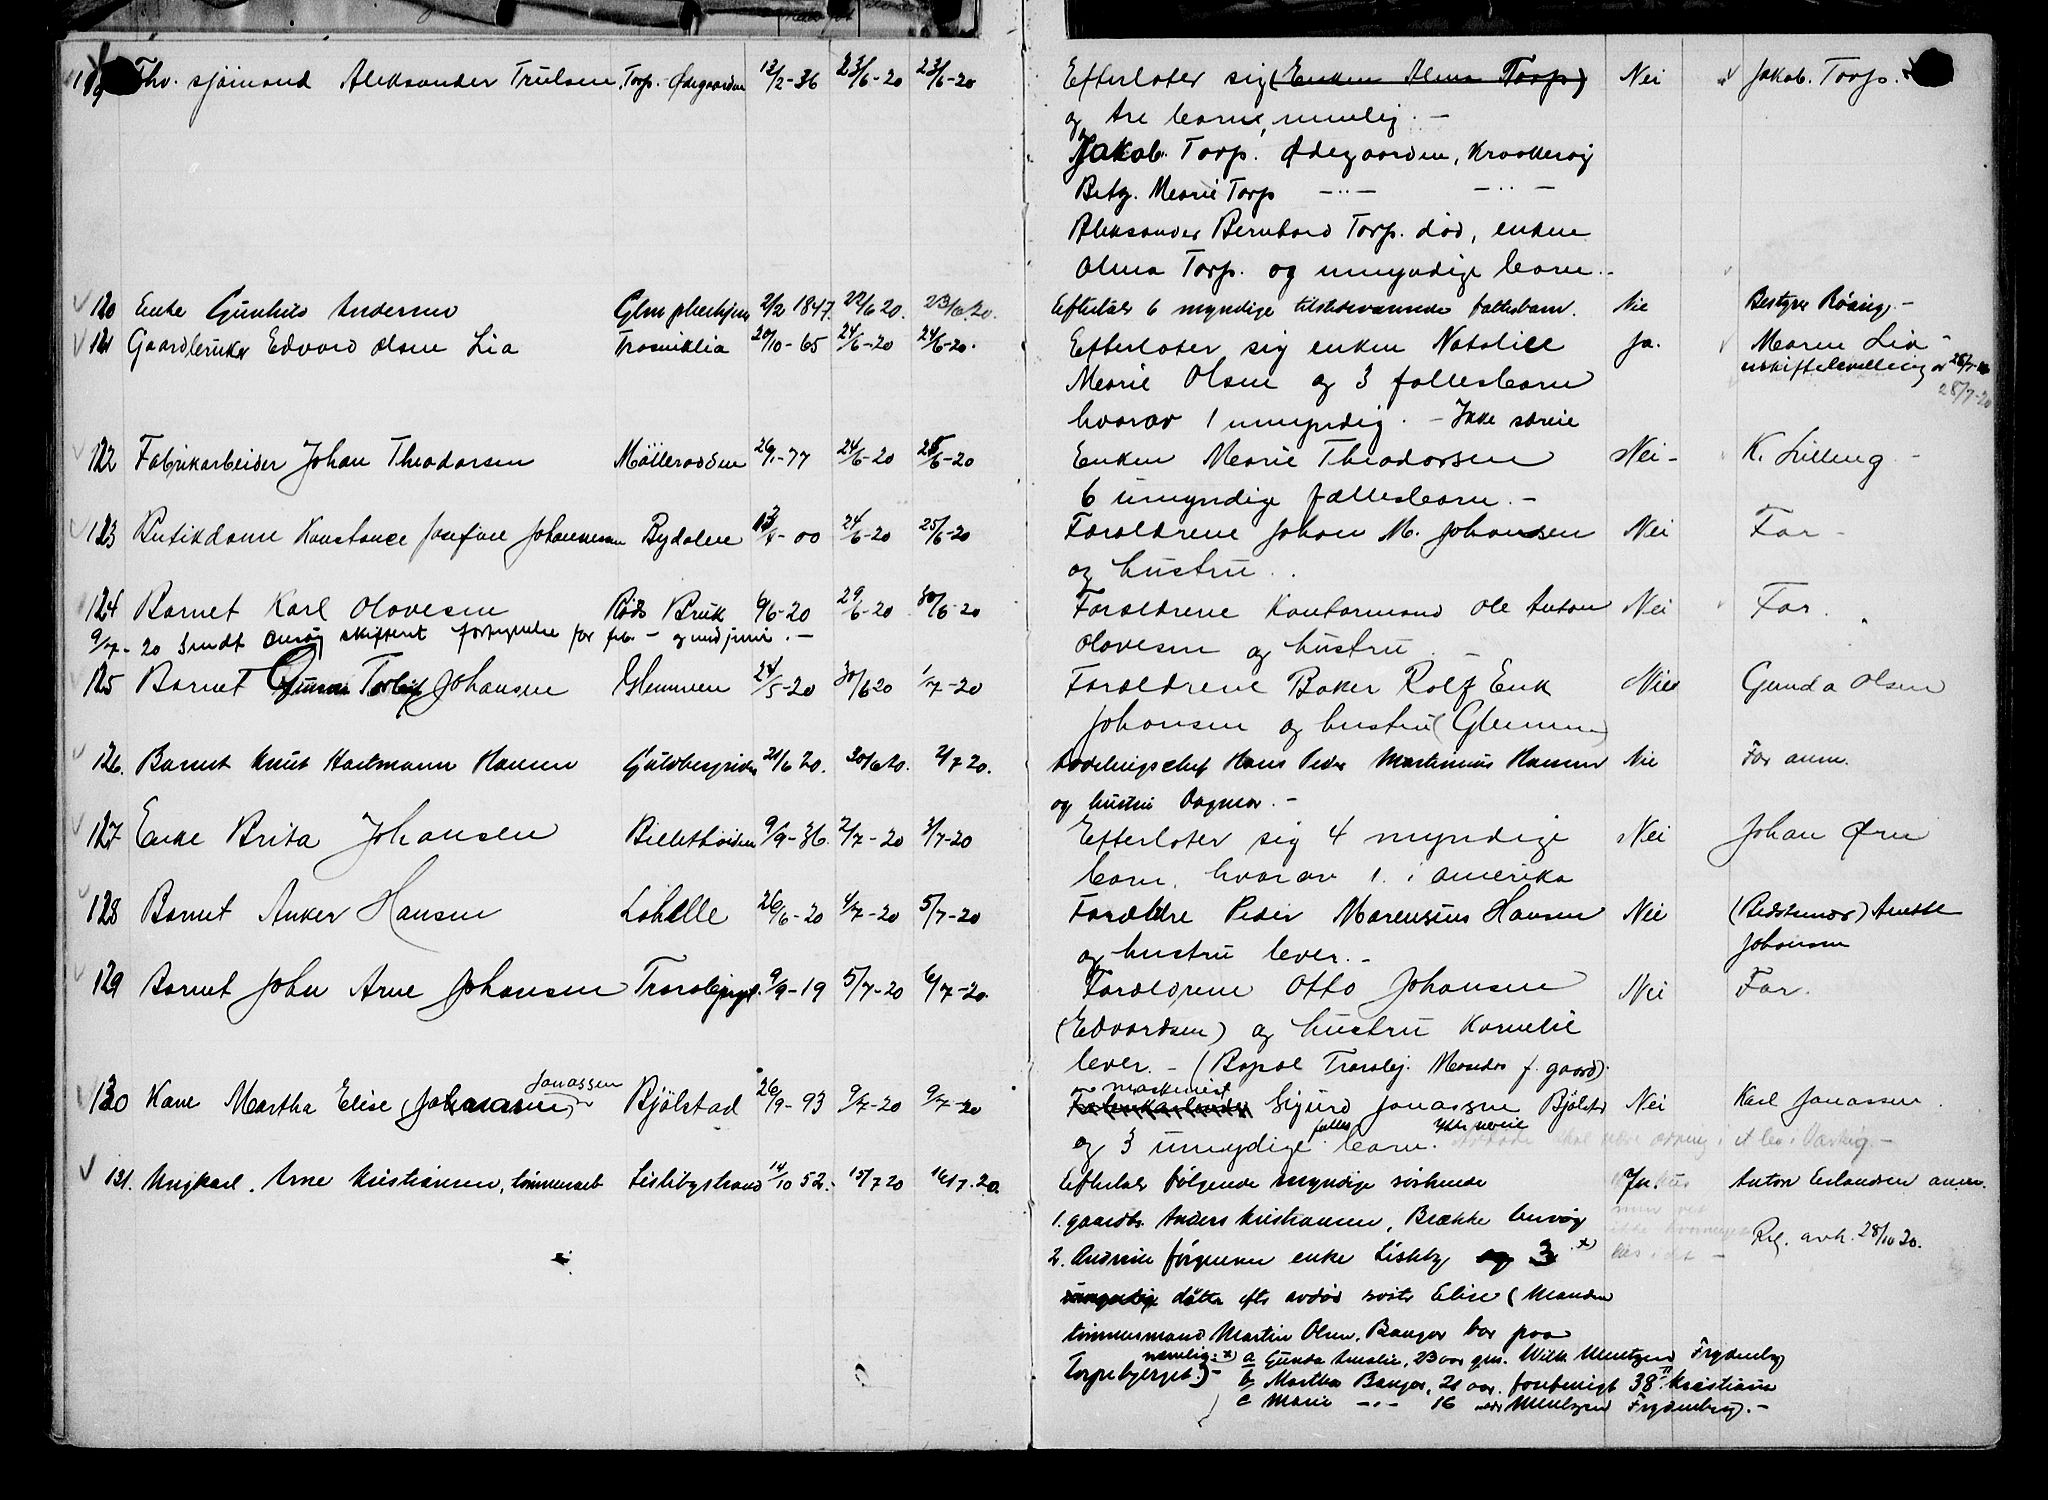 119 Fhv. sjømand Aleksander Trulsen, Torp. Ødegaarden 12/2-36 23/6-20 23/6-20 Efterlater sig (Enken Alma Torp) Nei Jakob. Torp.
og tre barn, nemlig. -
Jakob. Torp. Ødegaarden, Kraakerøy
Betzy. Marie Torp -"- -"-
Aleksander Bernhard Torp. død, enken
Alma Torp. og umyndige barn. -
120 Enke Gunhild Andersen Glm pleiehjem 2/2 1847. 22/6 20. 23/6 20. Efterlater 6 myndige tilstedeværende fællesbarn. Nei Bestyrer Røsing -
121 Gaardbruker Edvard Olsen Lia Trosviklia 20/10-65 24/6-20 24/6-20. Efterlater sig enken Natalie Ja. Maren Lia -
Marie Olsen og 3 fællesbarn uskiftebevilling av 28/7-20
28/7-20
hvorav 1 umyndig. - Ikke særeie
122 Fabrikarbeider Johan Theodorsen Möllerodden 26/1-77 24/6-20 25/6-20 Enken Marie Theodorsen Nei - K. Lilleng -
6 umyndige fællesbarn. -
123 Butikdame Konstance Josefine Johannesen Bydalen 13/4-00 24/6-20 25/6-20 Forældrene Johan M. Johansen Nei Far -
og hustru.
124 Barnet Karl Olavesen Röds Bruk 6/6-20 29/6-20 30/6-20 Forældrene Kontormand Ole Anton Nei Far.
9/7-20 Sendt Onsøy skifteret fortegnelse for feb. - og med juni. -
Olavesen og hustru. -
125 Barnet Gunnar Torleif Johansen Glemmen 24/5-20 30/6 20 1/7-20 Forældrene Baker Rolf Erik Nei Gunda Olsen
Johansen og hustru (Glemmen)
126. Barnet Knut Hartmann Hansen 21/6 20. 30/6 20. 2/7 20. Avdelingschef Hans Peder Martinius Hansen Nei Far anm.
og hustru Dagmar. -
127 Enke Brita Johansen 9/9-36. 2/7-20 3/7-20 Efterlater sig 4 myndige Nei Johan Ørn
barn, hvorav 1. i amerika
128 Barnet Anker Hansen Løkelle 26/6-20 4/7-20 5/7-20 Forældre Peder Marensius Hansen Nei (Bedstemor) Anette
Johansen
og hustru lever. -
129 Barnet John Arne Johansen 9/9-19 5/7-20 6/7-20. Forældrene Otto Johansen Nei Far.
(Edvardsen) og hustru Kornelie
lever. - f. gaard).
130 Kone Martha Elise (Johansen) Jonassen Bjölstad 26/9-93 9/7-20 9/7-20 maskinist Sigurd Jonassen Bjölstad Nei Karl Jonassen.
og 3 umyndige fælles barn. Ikke særeie
131. Ungkarl. Arne Kristiansen, tømmerarb Lislebystrand 14/10 52. 15/7 20 16/7. 20. Efterlater følgende myndige søskende Ja. Anton Erlandsen anm.
1. gaardbr. Anders Kristiansen, Brække Onsøy Reg. avh. 28/10 20.
2. Andrine Jørgensen enke Lisleby og 3 x)
umyndig døttre efter avdød søster Elise (Manden
tømmermand Martin Olsen. Banger bor paa
Torpebjerget) - nemlig: x) a Gunda Amalie, 23 aar gm. Wilh. Mentzen Frydenberg
b Martha Banger, 21 aar. 38 II Kristiania
c Marie -"- 16 Frydenberg. -